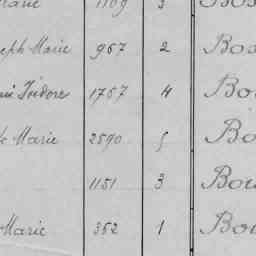 1109 3
Marie 967 2 Bos
Isidore 1757 4 Bo
Marie 2590 5 Bo
1151 3 Bou
Marie 352 1 Bou